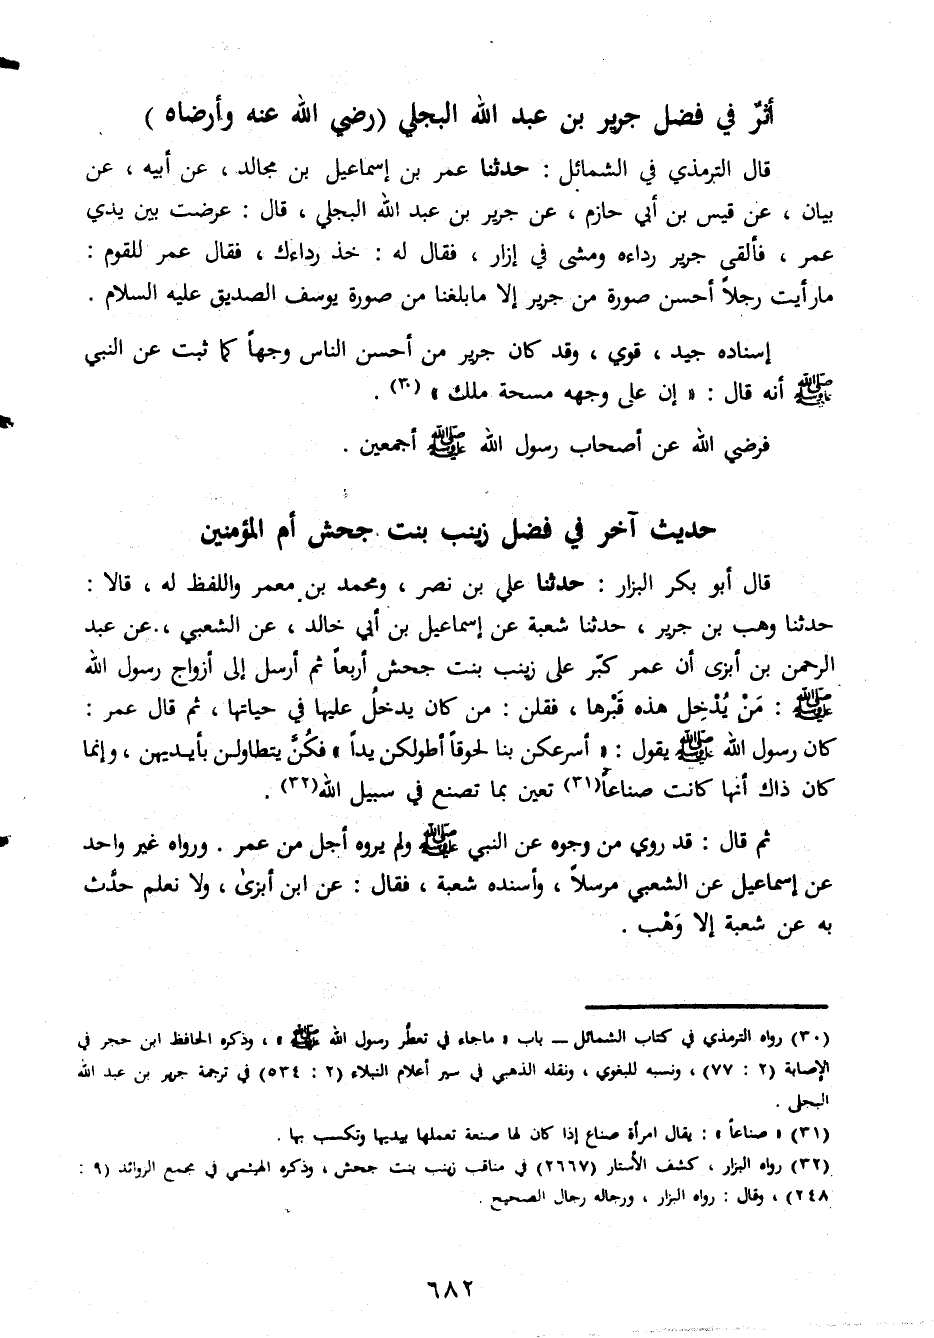 أثرٌ في فضل جرير بن عبد الله البجلي (رضي الله عنه وأرضاه )
قال الترمذي في الشمائل : حدثنا عمر بن إسماعيل بن مجالد ، عن أبيه ، عن
بيان ، عن قيس بن أبي حازم ، عن جرير بن عبد الله البجلي ، قال : عرضت بين يدي
عمر ، فألقى جرير رداءه ومشى في إزار ، فقال له : خذ رداءك ، فقال عمر للقوم :
مارأيت رجلاً أحسن صورة من جرير إلا مابلغنا من صورة يوسف الصديق عليه السلام .
إسناده جيد ، قوي ، وقد كان جرير من أحسن الناس وجهاً كما ثبت عن النبي
ﷺ أنه قال : « إن على وجهه مسحة ملك » (٣٠) .
فرضي الله عن أصحاب رسول الله ﷺ أجمعين .
حديث آخر في فضل زينب بنت جحش أم المؤمنين
قال أبو بكر البزار : حدثنا علي بن نصر ، ومحمد بن معمر واللفظ له ، قالا :
حدثنا وهب بن جرير ، حدثنا شعبة عن إسماعيل بن أبي خالد ، عن الشعبي ، عن عبد
الرحمن بن أبزى أن عمر كبّر على زينب بنت جحش أربعاً ثم أرسل إلى أزواج رسول الله
ﷺ : مَنْ يُدْخِل هذه قَبْرها ، فقلن : من كان يدخلُ عليها في حياتها ، ثم قال عمر :
كان رسول الله ﷺ يقول : « أسرعكن بنا لحوقاً أطولكن يداً » فكُنَّ يتطاولن بأيديهن ، وإنما
كان ذاك أنها كانت صناعاً(٣١) تعين بما تصنع في سبيل الله(٣٢) .
ثم قال : قد روي من وجوه عن النبي ﷺ ولم يروه أجل من عمر . ورواه غير واحد
عن إسماعيل عن الشعبي مرسلاً ، وأسنده شعبة ، فقال : عن ابن أبزىٰ ، ولا نعلم حدَّث
به عن شعبة إلا وَهْب .
(٣٠) رواه الترمذي في كتاب الشمائل ــ باب « ماجاء في تعطّر رسول الله ﷺ » ، وذكره الحافظ ابن حجر في
الإصابة (٢ : ٧٧) ، ونسبه للبغوي ، ونقله الذهبي في سير أعلام النبلاء (٢ : ٥٣٤) في ترجمة جرير بن عبد الله
البجلي .
(٣١) « صناعاً » : يقال امرأة صناع إذا كان لها صنعة تعملها بيديها وتكسب بها .
(٣٢) رواه البزار ، كشف الأستار (٢٦٦٧) في مناقب زينب بنت جحش ، وذكره الهيثمي في مجمع الزوائد (٩ :
٢٤٨) ، وقال : رواه البزار ، ورجاله رجال الصحيح .
٦٨٢